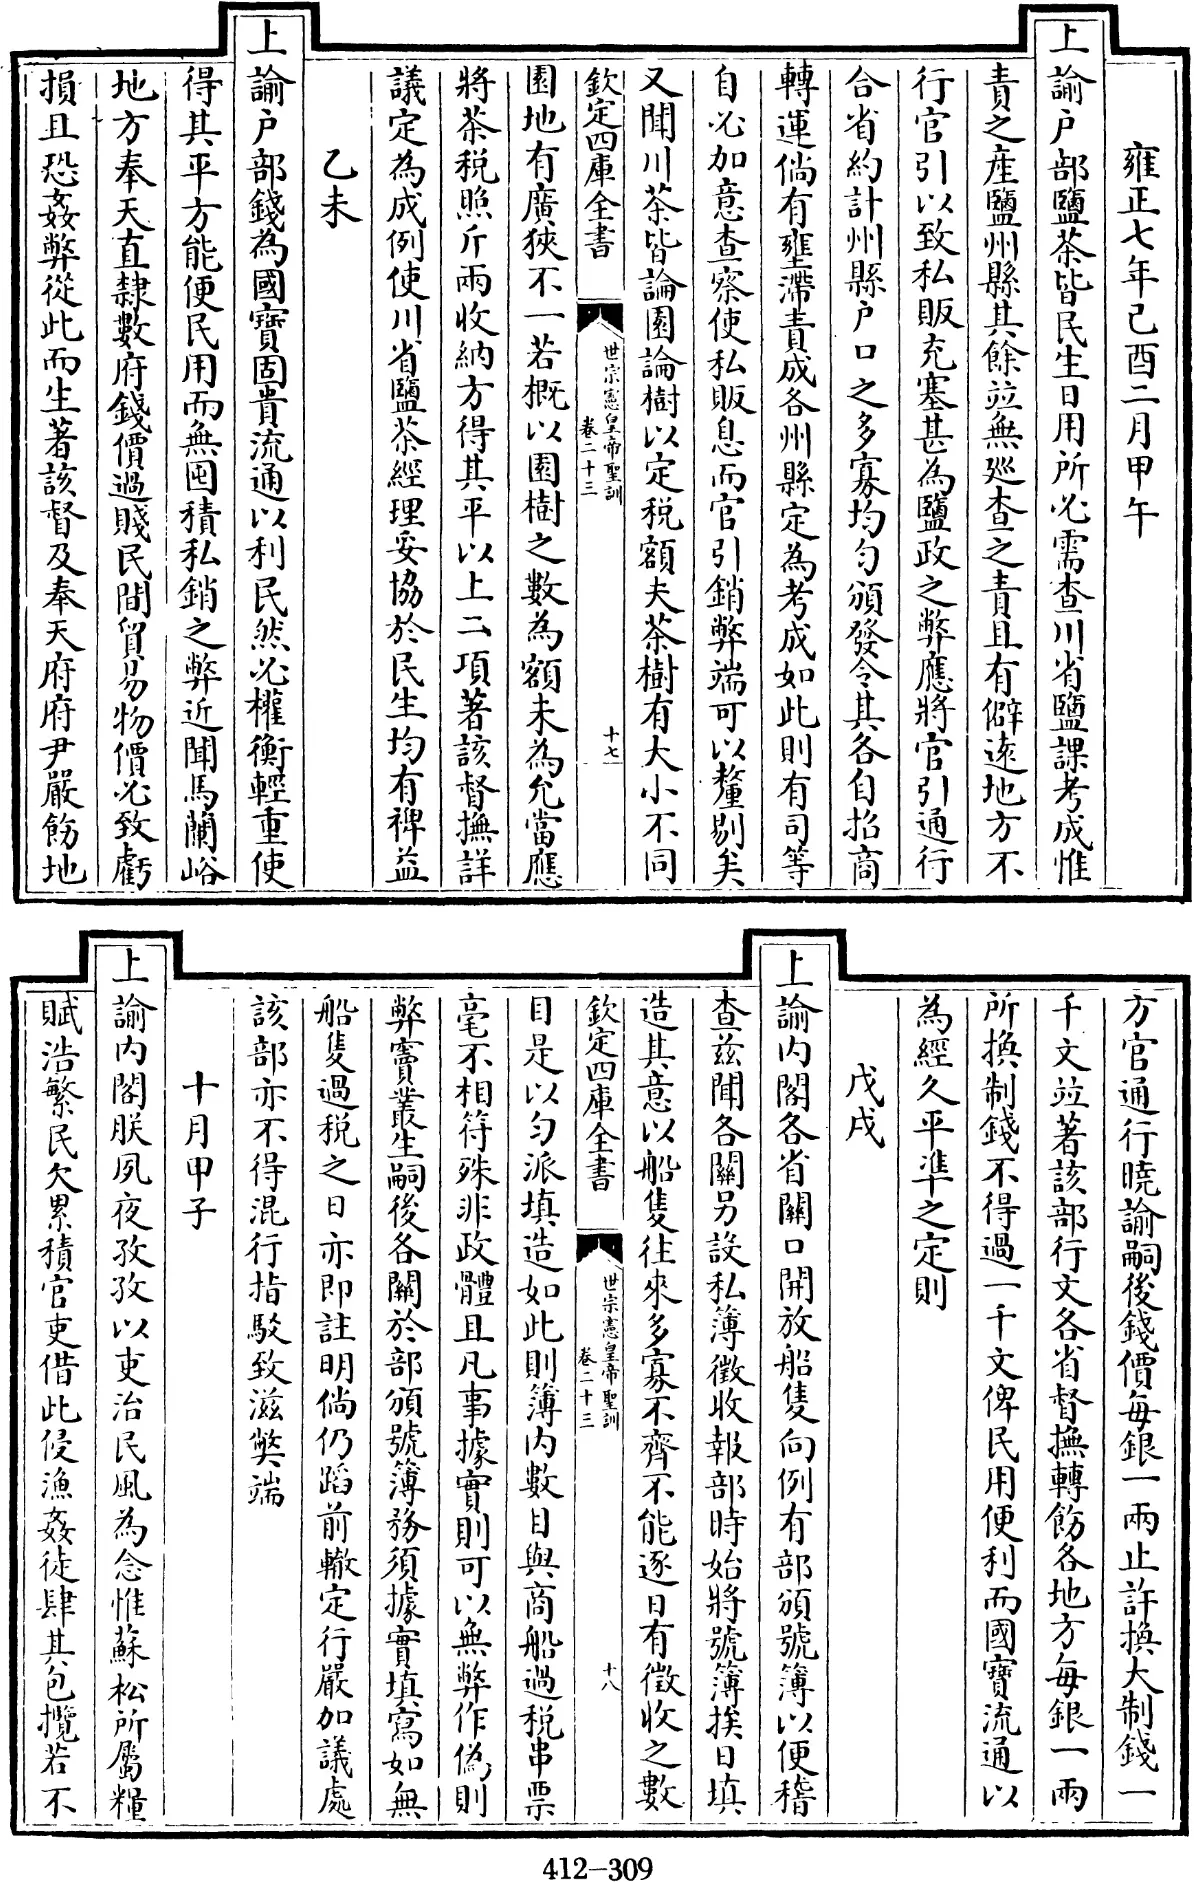 雍正七年己酉二月甲午
上諭户部鹽茶皆民生日用所必需查川省鹽課考成惟
責之產鹽州縣其餘竝無廵查之責且有僻逺地方不
行官引以致私販充塞甚為鹽政之弊應將官引通行
合省約計州縣户口之多寡均勻頒發令其各自招商
轉運倘有壅滯責成各州縣定為考成如此則有司等
自必加意查察使私販息而官引銷弊端可以釐剔矣
又聞川茶皆論園論樹以定税額夫茶樹有大小不同
欽定四庫全書
世宗憲皇帝聖訓
卷二十三
十七
園地有廣狹不一若概以園樹之數為額未為允當應
將茶税照斤兩收納方得其平以上二項著該督撫詳
議定為成例使川省鹽茶經理妥協於民生均有裨益
乙未
上諭户部錢為國寶固貴流通以利民然必權衡輕重使
得其平方能便民用而無囤積私銷之弊近聞馬蘭峪
地方奉天直隸數府錢價過賤民間貿易物價必致虧
損且恐姦弊從此而生著該督及奉天府府尹嚴飭地
方官通行曉諭嗣後錢價每銀一兩止許換大制錢一
千文竝著該部行文各省督撫轉飭各地方每銀一兩
所換制錢不得過一千文俾民用便利而國寶流通以
為經久平準之定則
戊戌
上諭内閣各省關口開放船隻向例有部頒號簿以便稽
查兹聞各關另設私簿徵收報部時始將號簿挨日填
造其意以船隻往來多寡不齊不能逐日有徵收之數
欽定四庫全書
世宗憲皇帝聖訓
卷二十三
十八
目是以勻派填造如此則簿内數目與商船過税串票
毫不相符殊非政體且凡事據實則可以無弊作偽則
弊竇叢生嗣後各關於部頒號簿務須據實填寫如無
船隻過税之日亦即註明倘仍蹈前轍定行嚴加議處
該部亦不得混行指駁致滋弊端
十月甲子
上諭内閣朕夙夜孜孜以吏治民風為念惟蘇松所屬糧
賦浩繁民欠累積官吏借此侵漁姦徒肆其包攬若不
412-309